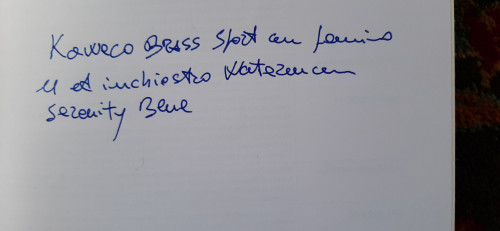 Kaweco Brass Sport con pennino
M et inchiostro Waterman
Serenity Blue